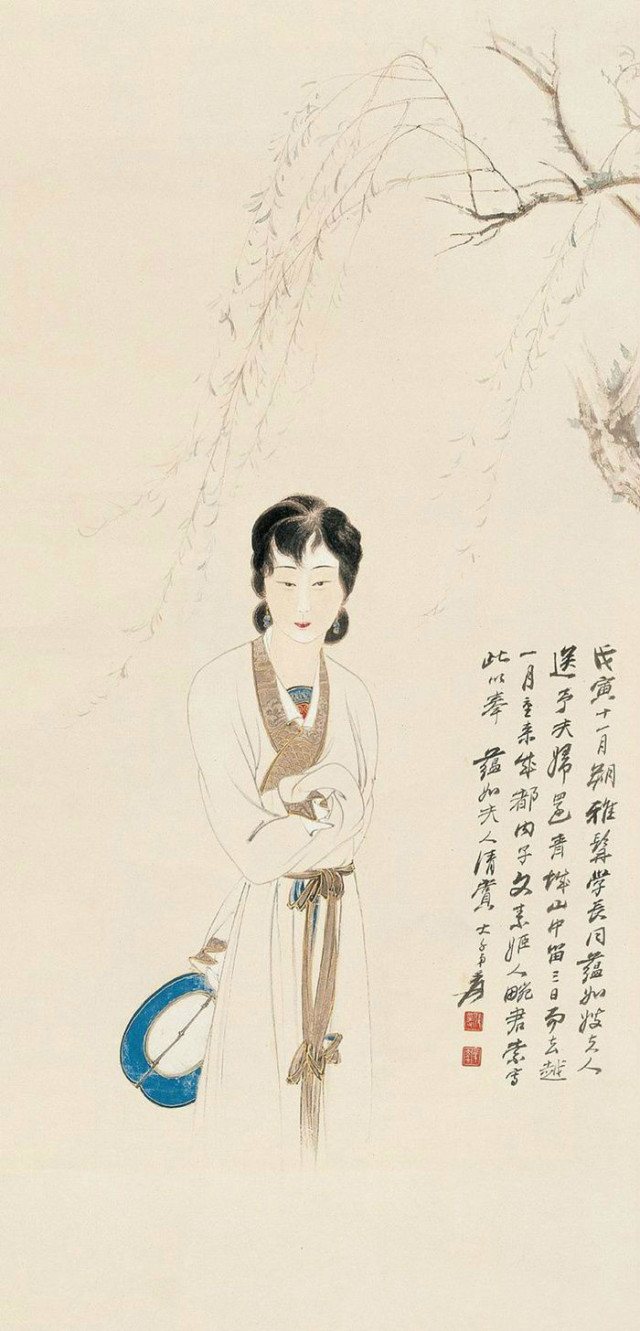 戊寅十一月朔雅髯学长同蕴如嫂夫人
送予夫婦还青城山中留三日而去越
一月重来成都内子文素姬人畹君索写
此以奉 蕴如夫人清賞 大千弟爰